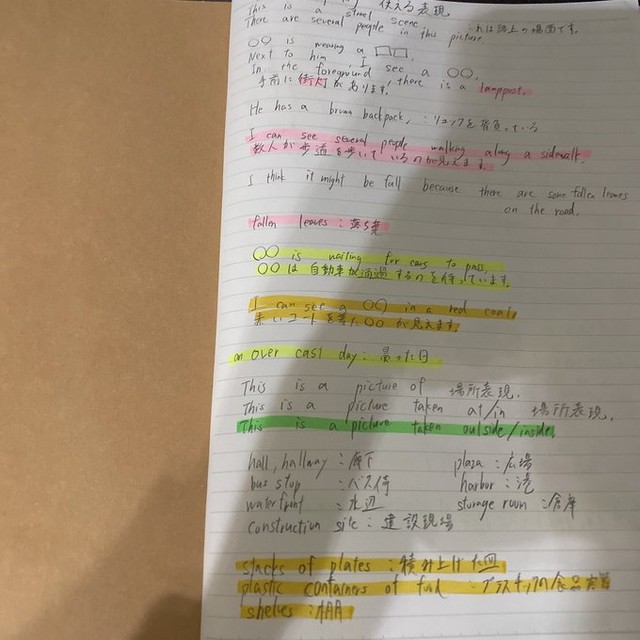 使える表現
This is a street scene.
There are several people in this picture.
これは路上の場面です。
○○ is wearing a □□.
Next to him,
In the foreground I see a ○○.
手前に街灯があります。 there is a lamppost.
He has a brown backpack. : リュックを背負っている
I can see several people walking along a sidewalk.
数人が歩道を歩いているのが見えます。
I think it might be fall because there are some fallen leaves
on the road.
fallen leaves : 落ち葉
○○ is waiting for cars to pass.
○○は自動車が通過するのを待っています。
I can see a ○○ in a red coat.
赤いコートを着た○○が見えます。
an over cast day : 曇った日
This is a picture of 場所表現.
This is a picture taken at/in 場所表現.
This is a picture taken outside/inside.
hall, hallway : 廊下 plaza : 広場
bus stop : バス停 harbor : 港
waterfront : 水辺 storage room : 倉庫
construction site : 建設現場
stacks of plates : 積み上げた皿
plastic containers of food : プラスチックの食品容器
shelves : 棚